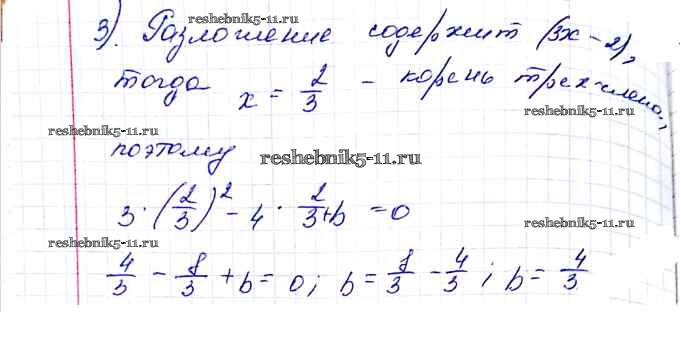 reshebnik5-11.ru
3). Разложение содержит (3x-2),
тогда x = 2/3 - корень трехчлена,
reshebnik5-11.ru
reshebnik5-11.ru
поэтому
reshebnik5-11.ru
3·(2/3)² - 4 · 2/3 + b = 0
reshebnik5-11.ru
reshebnik5-11.ru
4/3 - 8/3 + b = 0; b = 8/3 - 4/3; b = 4/3